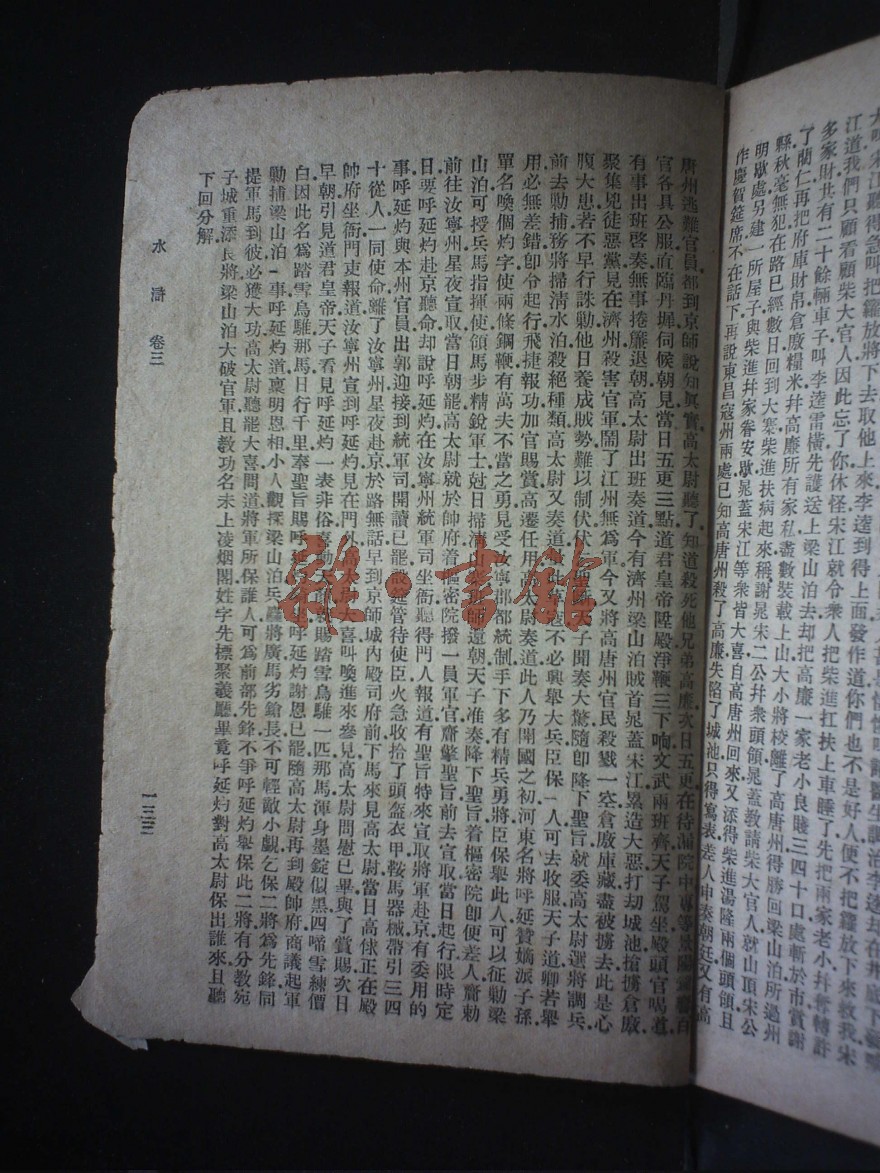 大叫宋江聽得急叫把籮放將下去取他上來李逵到得上面發作道你們也不是好人便不把籮放下來救我宋
江道我們只顧看顧柴大官人因此忘了你休怪宋江就令衆人把柴進扛扶上車睡了先把兩家老小幷奪轉許
多家財共有二十餘輛車子叫李逵雷橫先護送上梁山泊去却把高廉一家老小良賤三四十口處斬於市賞謝
了藺仁再把府庫財帛倉廒糧米幷高廉所有家私盡數裝載上山大小將校離了高唐州得勝回梁山泊所過州
縣秋毫無犯在路已經數日回到大寨柴進扶病起來稱謝晁宋二公幷衆頭領晁蓋教請柴大官人就山頂宋公
明歇處另建一所屋子與柴進幷家眷安歇晁蓋宋江等衆皆大喜自高唐州回來又添得柴進湯隆兩個頭領且
作慶賀筵席不在話下再說東昌寇州兩處已知高唐州殺了高廉失陷了城池只得寫表差人申奏朝廷又有高
唐州逃難官員都到京師說知眞實高太尉聽了知道殺死他兄弟高廉次日五更在待漏院中專等景陽鐘響百
官各具公服直臨丹墀伺候朝見當日五更三點道君皇帝陞殿淨鞭三下响文武兩班齊天子駕坐殿頭官喝道
有事出班啓奏無事捲簾退朝高太尉出班奏道今有濟州梁山泊賊首晁蓋宋江累造大惡打刧城池搶擄倉廒
聚集兇徒惡黨見在濟州殺害官軍鬧了江州無爲軍今又將高唐州官民殺戮一空倉廒庫藏盡被擄去此是心
腹大患若不早行誅勦他日養成賊勢難以制伏伏聖斷天子聞奏大驚隨即降下聖旨就委高太尉選將調兵
前去勦捕務將掃清水泊殺絕種類高太尉又奏道量此草寇不必興舉大兵臣保一人可去收服天子道卿若舉
用必無差錯卽令起行飛捷報功加官賜賞高遷任用高太尉奏道此人乃開國之初河東名將呼延贊嫡派子孫
單名喚個灼字使兩條鋼鞭有萬夫不當之勇見受汝寧郡都統制手下多有精兵勇將臣保舉此人可以征勦梁
山泊可授兵馬指揮使領馬步精銳軍士尅日掃清山寨班師還朝天子准奏降下聖旨着樞密院卽便差人齎勅
前往汝寧州星夜宣取當日朝罷高太尉就於帥府着樞密院撥一員軍官齎擎聖旨前去宣取當日起行限時定
日要呼延灼赴京聽命却說呼延灼在汝寧州統軍司坐衙聽得門人報道有聖旨特來宣取將軍赴京有委用的
事呼延灼與本州官員出郭迎接到統軍司開讀已罷設筵管待使臣火急收拾了頭盔衣甲鞍馬器械帶引三四
十從人一同使命離了汝寧州星夜赴京於路無話早到京師城內殿司府前下馬來見高太尉當日高俅正在殿
帥府坐衙門吏報道汝寧州宣到呼延灼見在門外高太尉大喜叫喚進來參見高太尉問慰已畢與了賞賜次日
早朝引見道君皇帝天子看見呼延灼一表非俗喜動天顏就賜踏雪烏騅一匹那馬渾身墨錠似黑四啼雪練價
白因此名爲踏雪烏騅那馬日行千里奉聖旨賜呼延灼騎坐呼延灼謝恩已罷隨高太尉再到殿帥府商議起軍
勦捕梁山泊一事呼延灼道稟明恩相小人觀探梁山泊兵麤將廣馬劣鎗長不可輕敵小覷乞保二將爲先鋒同
提軍馬到彼必獲大功高太尉聽罷大喜問道將軍所保誰人可爲前部先鋒不爭呼延灼舉保此二將有分教宛
子城重添良將梁山泊大破官軍且教功名未上凌烟閣姓字先標聚義廳畢竟呼延灼對高太尉保出誰來且聽
下回分解
水滸 卷三
一三三
雜·書館